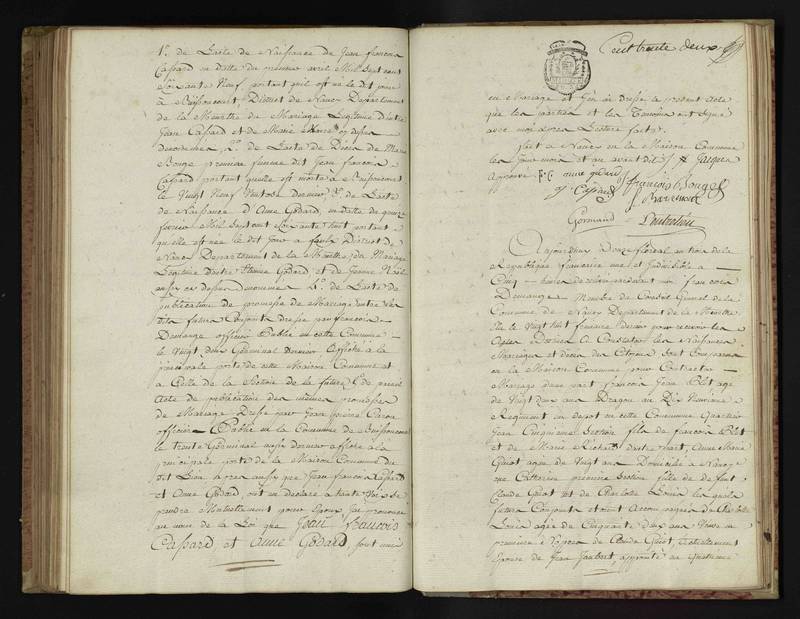 1º. de L'acte de Naissance de Jean françois
Cassard en datte du mil Sept cent
Soixante Neuf, portant qu'il est né le dit jour
à Buissoncourt, District de Nancy Departement
de la Meurthe du Mariage Légitime d'entre
Jean Cassard et de Marie
2º. de L'acte de Décès de Marie
Bouge premiere femme dit Jean francois
Cassard portant qu'elle est morte à Buissoncourt
le Vingt Neuf Ventose dernier 3º. de L'acte
de Naissance d'Anne Godard, en datte de quinze
fevrier Mil Sept cent Soixante huit portant
qu'elle est née le dit jour à District de
Nancy Departement de la Meurthe du Mariage
Legitime d'entre Godard et de Jeanne
aussy ci dessus 4º. de L'acte de
publication de promesse de Mariage entre les
dits futurs Conjoints dressé par francois
Demange officier Public en cette Commune
le Vingt deux Germinal dernier affiché à la
principale porte de cette Maison Commune et
à Celle de la Section de la future 5º. de pareil
acte de publication des mêmes promesses
de Mariage Dressé par Jean pierre
officier Public en la Commune de Buissoncourt
le trente Germinal aussy dernier affiché à la
principale porte de la Maison Commune du
dit Lieu après aussy que Jean francois Cassard
et Anne Godard ont eu déclaré à haute Voix se
prendre Mutuellement pour Epoux J'ai prononcé
au nom de la Loi que Jean francois
Cassard, et Anne Godard, sont unis
Cent trente deux
en Mariage et J'en ai dressé le present Acte
que les parties et les Témoins ont Signé
avec moi après Lecture faite.
fait à Nancy en la Maison Commune
les Jour mois et an avant dit Jacques
Approuvé
J. Cassard françois Bouge
Gormand
Aujourdhui Douze floréal an trois de la
République française une et Indivisible à
Cinq heures de relevée pardevant moi francois
Demange Membre du Conseil General de la
Commune de Nancy Departement de la Meurthe
Elu le Vingt huit frimaire dernier pour recevoir les
Actes Destinés à Constater les Naissances
Mariages et décès des Citoyens Sont Comparus
en la Maison Commune pour Contracter
Mariage d'une part françois Jean agé
de Vingt deux ans Dragon au Dix Neuvieme
Regiment en depot en cette Commune Quartier
Jean Cinquieme Section fils de francois
et de Marie Richard d'autre part, Anne Marie
Guiot agée de Vingt ans Domiciliée à Nancy
rue Catherine premiere Section fille de défunt
Claude Guiot et de Charlotte Louis les quels
futurs Conjoints etoient Accompagnés de Charlotte
Louis agée de Cinquante deux ans Veuve en
premiere Noces de Claude Guiot, actuellement
Epouse de Jean Joubert, appointé au quatrieme